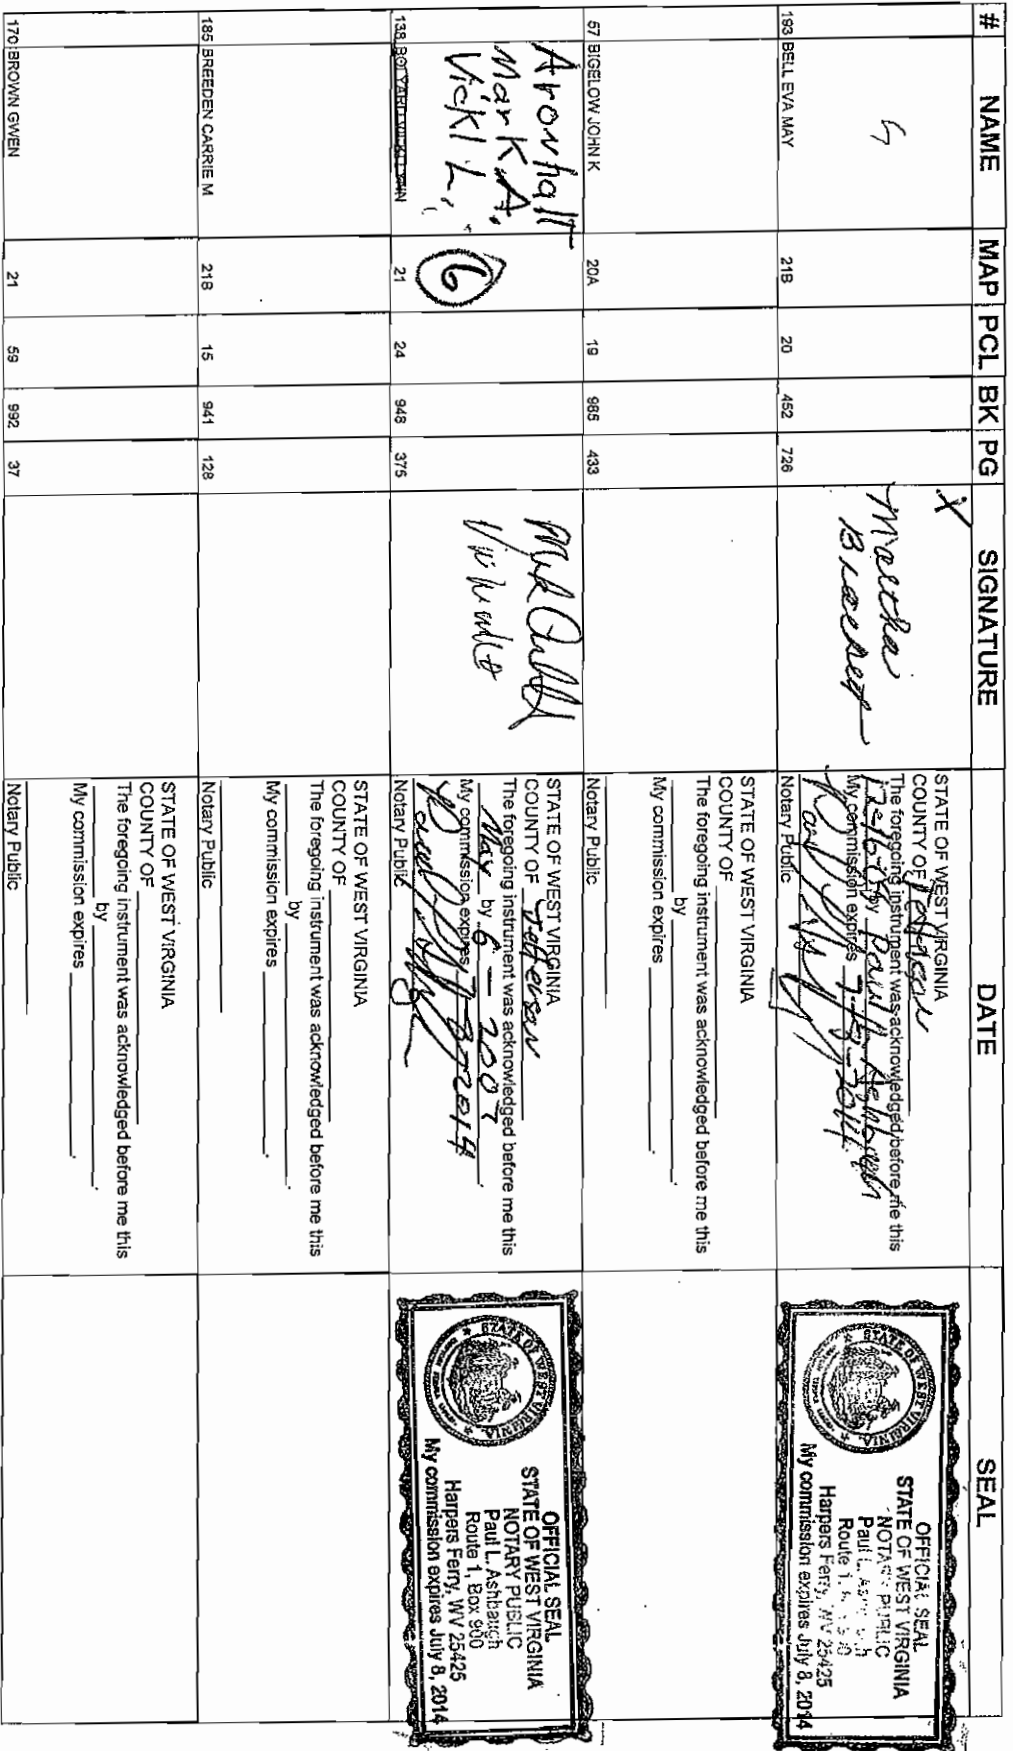 # NAME MAP PCL BK PG SIGNATURE DATE SEAL
193 BELL EVA MAY 21B 20 452 726
X
Martha
STATE OF WEST VIRGINIA
COUNTY OF Jefferson
The foregoing instrument was acknowledged before me this
by Paul L. Ashbaugh
My commission expires 7-8-2014
Notary Public
OFFICIAL SEAL
STATE OF WEST VIRGINIA
NOTARY PUBLIC
Paul L.
Route 1,
Harpers Ferry, WV 25425
My commission expires July 8, 2014
STATE OF WEST VIRGINIA
57 BIGELOW JOHN K 20A 19 985 433
STATE OF WEST VIRGINIA
COUNTY OF
The foregoing instrument was acknowledged before me this
by
My commission expires
Notary Public
Aronhalt
Mark A.
Vicki L.
6
138 21 24 948 375
STATE OF WEST VIRGINIA
COUNTY OF Jefferson
The foregoing instrument was acknowledged before me this
May by 6 - 2009
My commission expires 7-8-2014
Notary Public
OFFICIAL SEAL
STATE OF WEST VIRGINIA
NOTARY PUBLIC
Paul L. Ashbaugh
Route 1, Box 900
Harpers Ferry, WV 25425
My commission expires July 8, 2014
STATE OF WEST VIRGINIA
185 BREEDEN CARRIE M 21B 15 941 128
STATE OF WEST VIRGINIA
COUNTY OF
The foregoing instrument was acknowledged before me this
by
My commission expires
Notary Public
170 BROWN GWEN 21 59 992 37
STATE OF WEST VIRGINIA
COUNTY OF
The foregoing instrument was acknowledged before me this
by
My commission expires
Notary Public